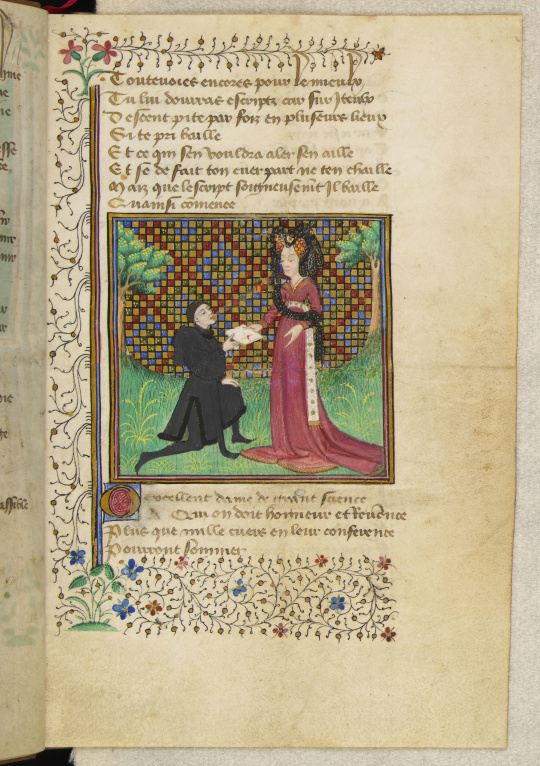 Toutevoies encores pour le mieulx
Tu lui donrras escriptz car sur Iceulx
Descent pite par foiz en pluseurs lieux
Si te pri baille
Et ce qui sen vouldra aler sen aille
Et se de fait ton cuer part ne ten chaille
Maiz que lescript songneusemt Il baille
Quainsi comence
excellent dame de science
A Qui on doit honneur et Reuence
Plus que mille cuers en leur conference
Pourront sommer